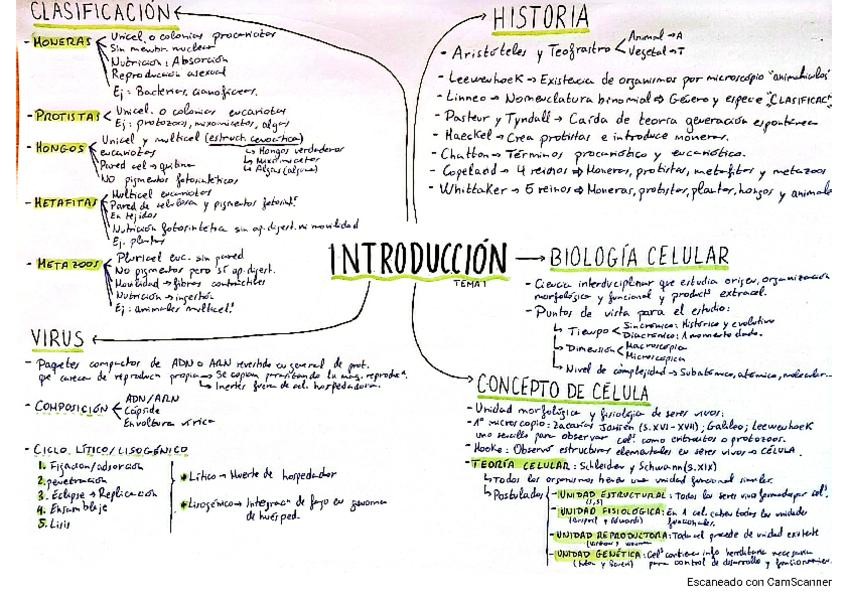 CLASIFICACIÓN
- MONERAS
Unicel. o colonias procariotas
Sin membr nuclear
Nutrición: Absorción
Reproducción asexual
Ej: Bacterias, cianofíceas.
- PROTISTAS
Unicel. o colonias eucariotas
Ej: protozoos, mixomicetos, algas
- HONGOS
Unicel y multicel (estruct. cenocítica)
eucariotas
Pared cel → quitina
NO pigmentos fotosintéticos
↳ Hongos verdaderos
↳ Mixomicetos
↳ Algas (alguna)
- METAFITAS
Multicel eucariotas
Pared de celulosa y pigmentos fotosint.
En tejidos
Nutrición fotosintética sin ap. digest. ni movilidad
Ej. plantas
- METAZOOS
Pluricel euc. sin pared
No pigmentos pero sí ap. digest.
Movilidad → fibras contráctiles
Nutrición → ingestión
Ej: animales multicel.
VIRUS
- Paquetes compactos de ADN o ARN revestido en general de prot.
que carecen de reproducn propia → Se copian parasitando la maq. reproduc.
↳ Inertes fuera de cel. hospedadora.
- COMPOSICIÓN
ADN/ARN
Cápside
Envoltura vírica
- CICLO LÍTICO/LISOGÉNICO
1. Fijación/adsorción
2. penetración
3. Eclipse → Replicación
4. Ensamblaje
5. Lisis
Lítico → Muerte de hospedador
Lisogénico → Integrac. de fago en genoma
de huésped.
INTRODUCCIÓN
TEMA 1
HISTORIA
- Aristóteles y Teofrastro
Animal → A
Vegetal → T
- Leewenhoek → Existencia de organismos por microscopio "animáculos"
- Linneo → Nomenclatura binomial → Género y especie "CLASIFICAC"
- Pasteur y Tyndall → Caída de teoría generación espontánea
- Haeckel → Crea protistas e introduce moneras.
- Chatton → Términos procariótico y eucariótico.
- Copeland → 4 reinos → Moneras, protistas, metafitas y metazoos
- Whittaker → 5 reinos → Moneras, protistas, plantas, hongos y animale
BIOLOGÍA CELULAR
- Ciencia interdisciplinar que estudia origen, organización
morfológica y funcional y product. extracel.
- Puntos de vista para el estudio:
↳ Tiempo
Sincrónico: Histórico y evolutivo
Diacrónico: 1 momento dado.
↳ Dimensión
Macroscópica
Microscópica
↳ Nivel de complejidad → Subatómico, atómico, molecular...
CONCEPTO DE CÉLULA
- Unidad morfológica y fisiológica de seres vivos:
- 1º microscopio: Zacarías Janssen (S. XVI - XVII); Galileo; Leewenhoek
uno sencillo para observar cel. como eritrocitos o protozoos.
- Hooke: Observó estructuras elementales en seres vivos → CÉLULA.
- TEORÍA CELULAR: Schleiden y Schwann (S. XIX)
↳ Todos los organismos tienen una unidad funcional similar.
↳ Postulados
- UNIDAD ESTRUCTURAL: Todos los seres vivos formados por cel.
- UNIDAD FISIOLÓGICA: En 1 cel. caben todas las unidades
funcionales.
- UNIDAD REPRODUCTORA: Toda cel procede de unidad existente
- UNIDAD GENÉTICA: Cel. contienen info hereditaria necesaria
para control de desarrollo y funcionamien.
Escaneado con CamScanner